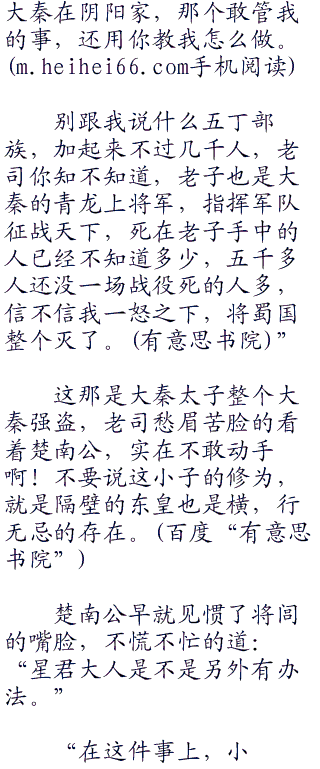 大秦在阴阳家，那个敢管我
的事，还用你教我怎么做。
(m.heihei66.com手机阅读)
别跟我说什么五丁部
族，加起来不过几千人，老
司你知不知道，老子也是大
秦的青龙上将军，指挥军队
征战天下，死在老子手中的
人已经不知道多少，五千多
人还没一场战役死的人多，
信不信我一怒之下，将蜀国
整个灭了。(有意思书院)”
这那是大秦太子整个大
秦强盗，老司愁眉苦脸的看
着楚南公，实在不敢动手
啊！不要说这小子的修为，
就是隔壁的东皇也是横，行
无忌的存在。(百度“有意思
书院”)
楚南公早就见惯了将闾
的嘴脸，不慌不忙的道：
“星君大人是不是另外有办
法。”
“在这件事上，小